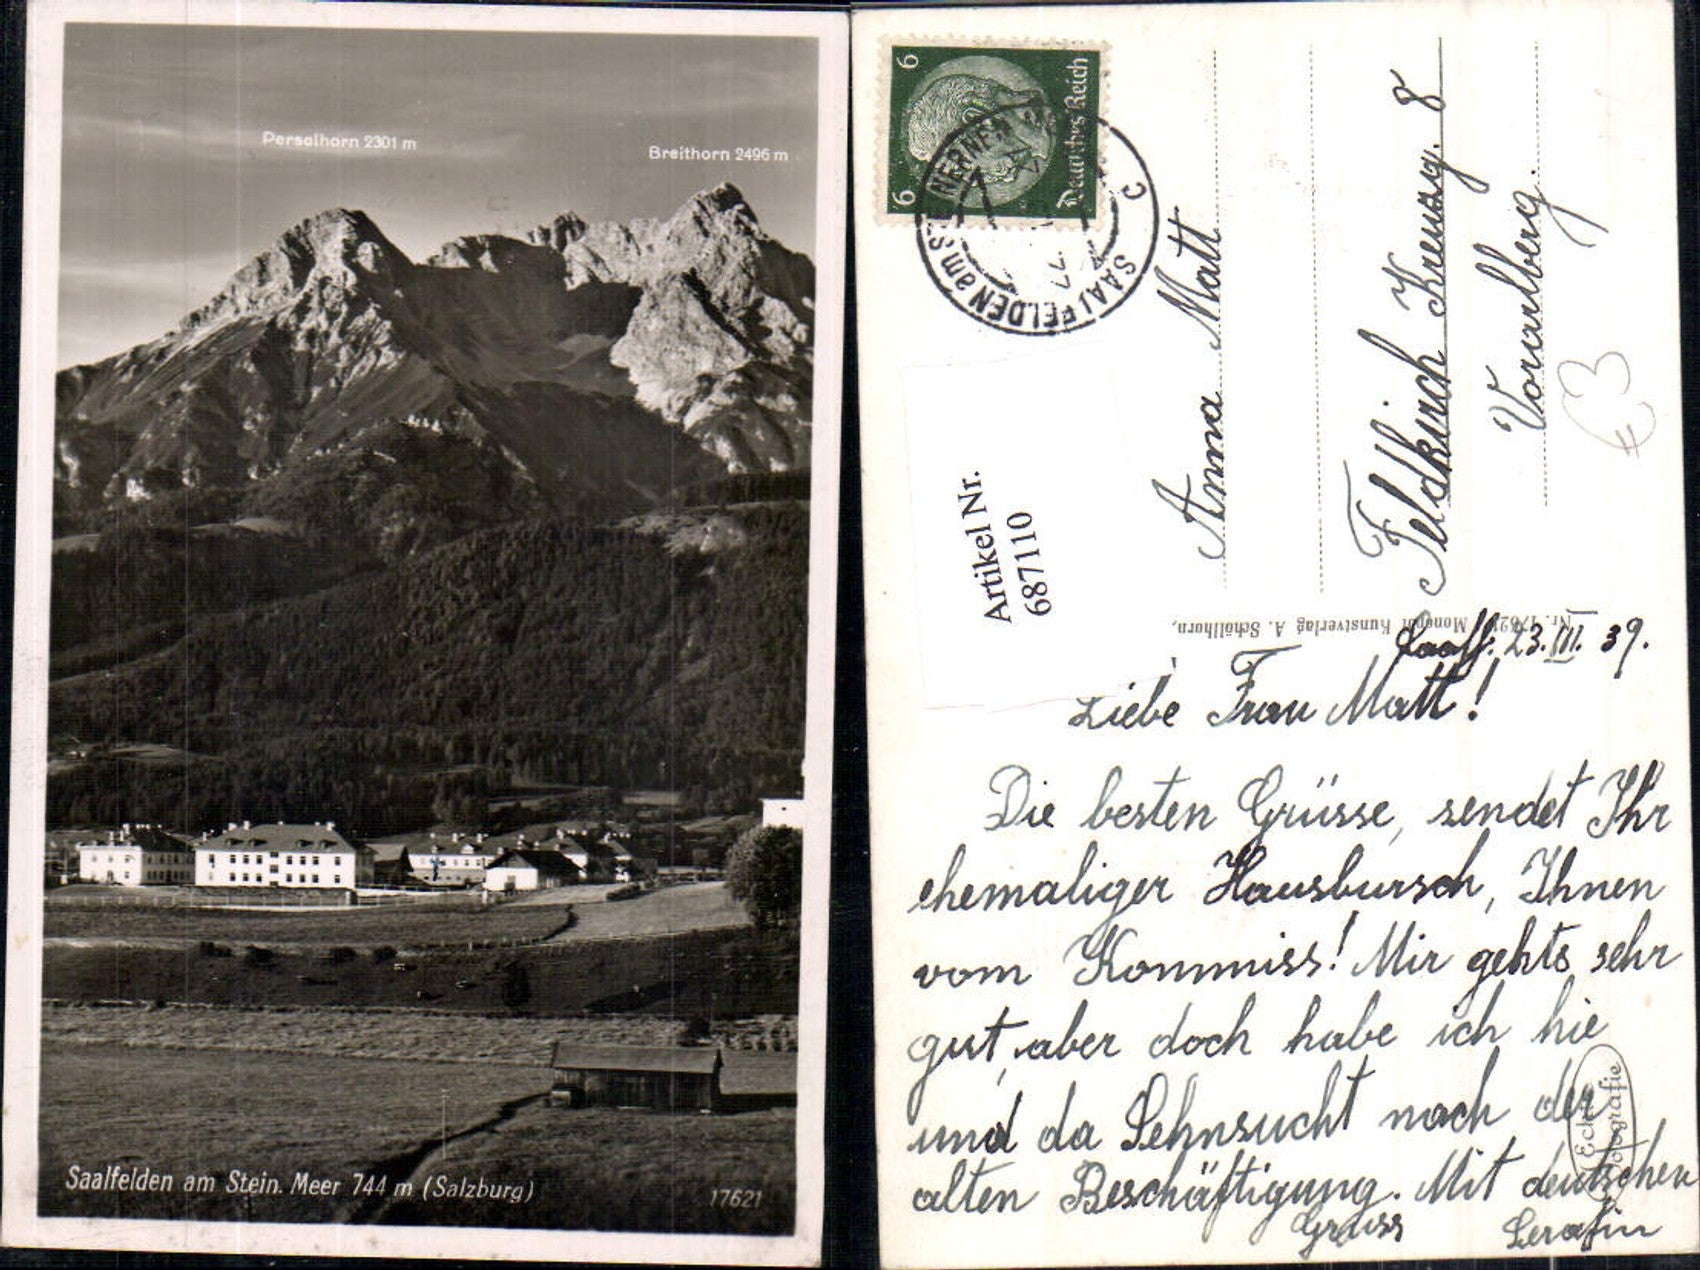 Persalhorn 2301 m
Breithorn 2496 m
Saalfelden am Stein. Meer 744 m (Salzburg)
17621
6
6
Deutsches Reich
SAALFELDEN am
NERNEN
C
Anna Matt
Feldkirch Kreuzg. 8
Vorarlberg.
€3
Artikel Nr.
687110
Nr. 17621 Monopol Kunstverlag A. Schöllhorn,
Saalf. 23.III.39.
Liebe Frau Matt!
Die besten Grüsse, sendet Ihr
ehemaliger Hausbursch, Ihnen
vom Kommiss! Mir gehts sehr
gut, aber doch habe ich hie
und da Sehnsucht nach der
alten Beschäftigung. Mit deutschen
Gruss Serafin
Echte
Fotografie